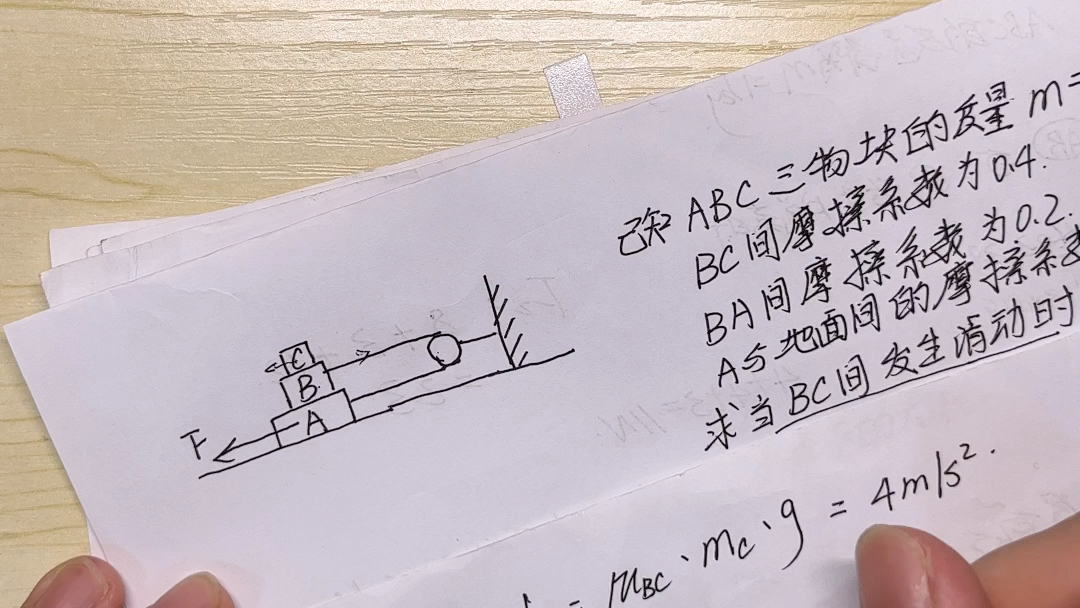 已知 ABC 三物块的质量 m=
BC间摩擦系数为0.4.
BA间摩擦系数为0.2.
A与地面间的摩擦系数
求当BC间发生滑动时
C
B
A
F
= μBC·mC·g = 4m/s².